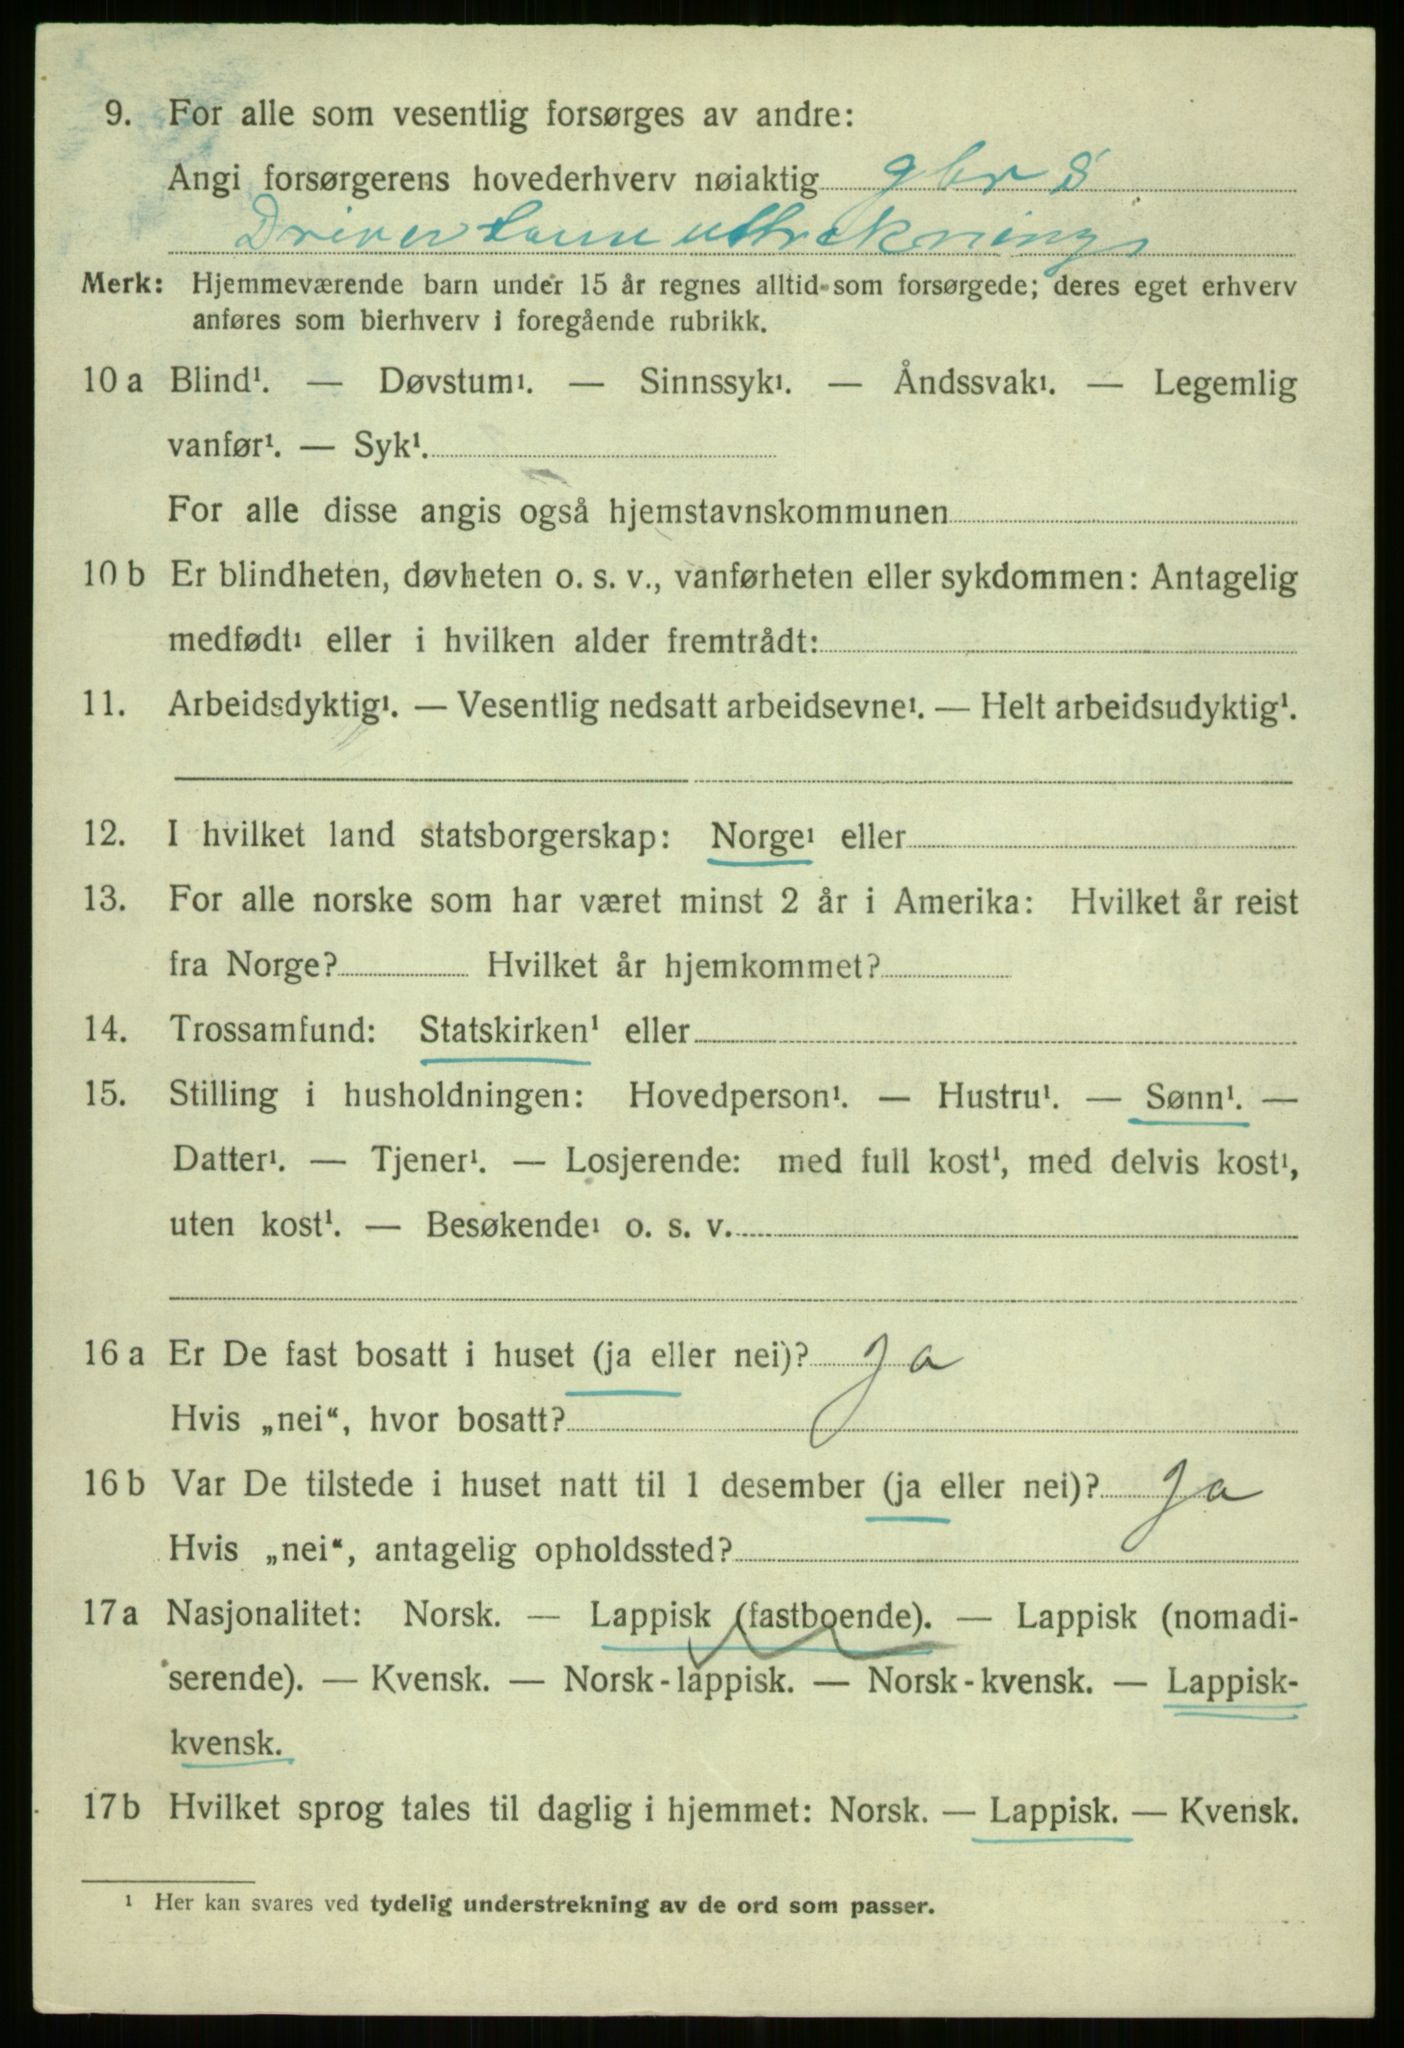 9. For alle som vesentlig forsørges av andre:
Angi forsørgerens hovederhverv nøiaktig gbr s
Driver
Merk: Hjemmeværende barn under 15 år regnes alltid som forsørgede; deres eget erhverv
anføres som bierhverv i foregående rubrikk.
10 a Blind¹. — Døvstum¹. — Sinnssyk¹. — Åndssvak¹. — Legemlig
vanfør¹. — Syk¹.
For alle disse angis også hjemstavnskommunen
10 b Er blindheten, døvheten o. s. v., vanførheten eller sykdommen: Antagelig
medfødt¹ eller i hvilken alder fremtrådt:
11. Arbeidsdyktig¹. — Vesentlig nedsatt arbeidsevne¹. — Helt arbeidsudyktig¹.
12. I hvilket land statsborgerskap: Norge¹ eller
13. For alle norske som har været minst 2 år i Amerika: Hvilket år reist
fra Norge? Hvilket år hjemkommet?
14. Trossamfund: Statskirken¹ eller
15. Stilling i husholdningen: Hovedperson¹. — Hustru¹. — Sønn¹. —
Datter¹. — Tjener¹. — Losjerende: med full kost¹, med delvis kost¹,
uten kost¹. — Besøkende¹ o. s. v.
16 a Er De fast bosatt i huset (ja eller nei)? Ja
Hvis „nei“, hvor bosatt?
16 b Var De tilstede i huset natt til 1 desember (ja eller nei)? Ja
Hvis „nei“, antagelig opholdssted?
17 a Nasjonalitet: Norsk. — Lappisk (fastboende). — Lappisk (nomadi-
serende). — Kvensk. — Norsk-lappisk. — Norsk-kvensk. — Lappisk-
kvensk.
17 b Hvilket sprog tales til daglig i hjemmet: Norsk. — Lappisk. — Kvensk.
¹ Her kan svares ved tydelig understrekning av de ord som passer.